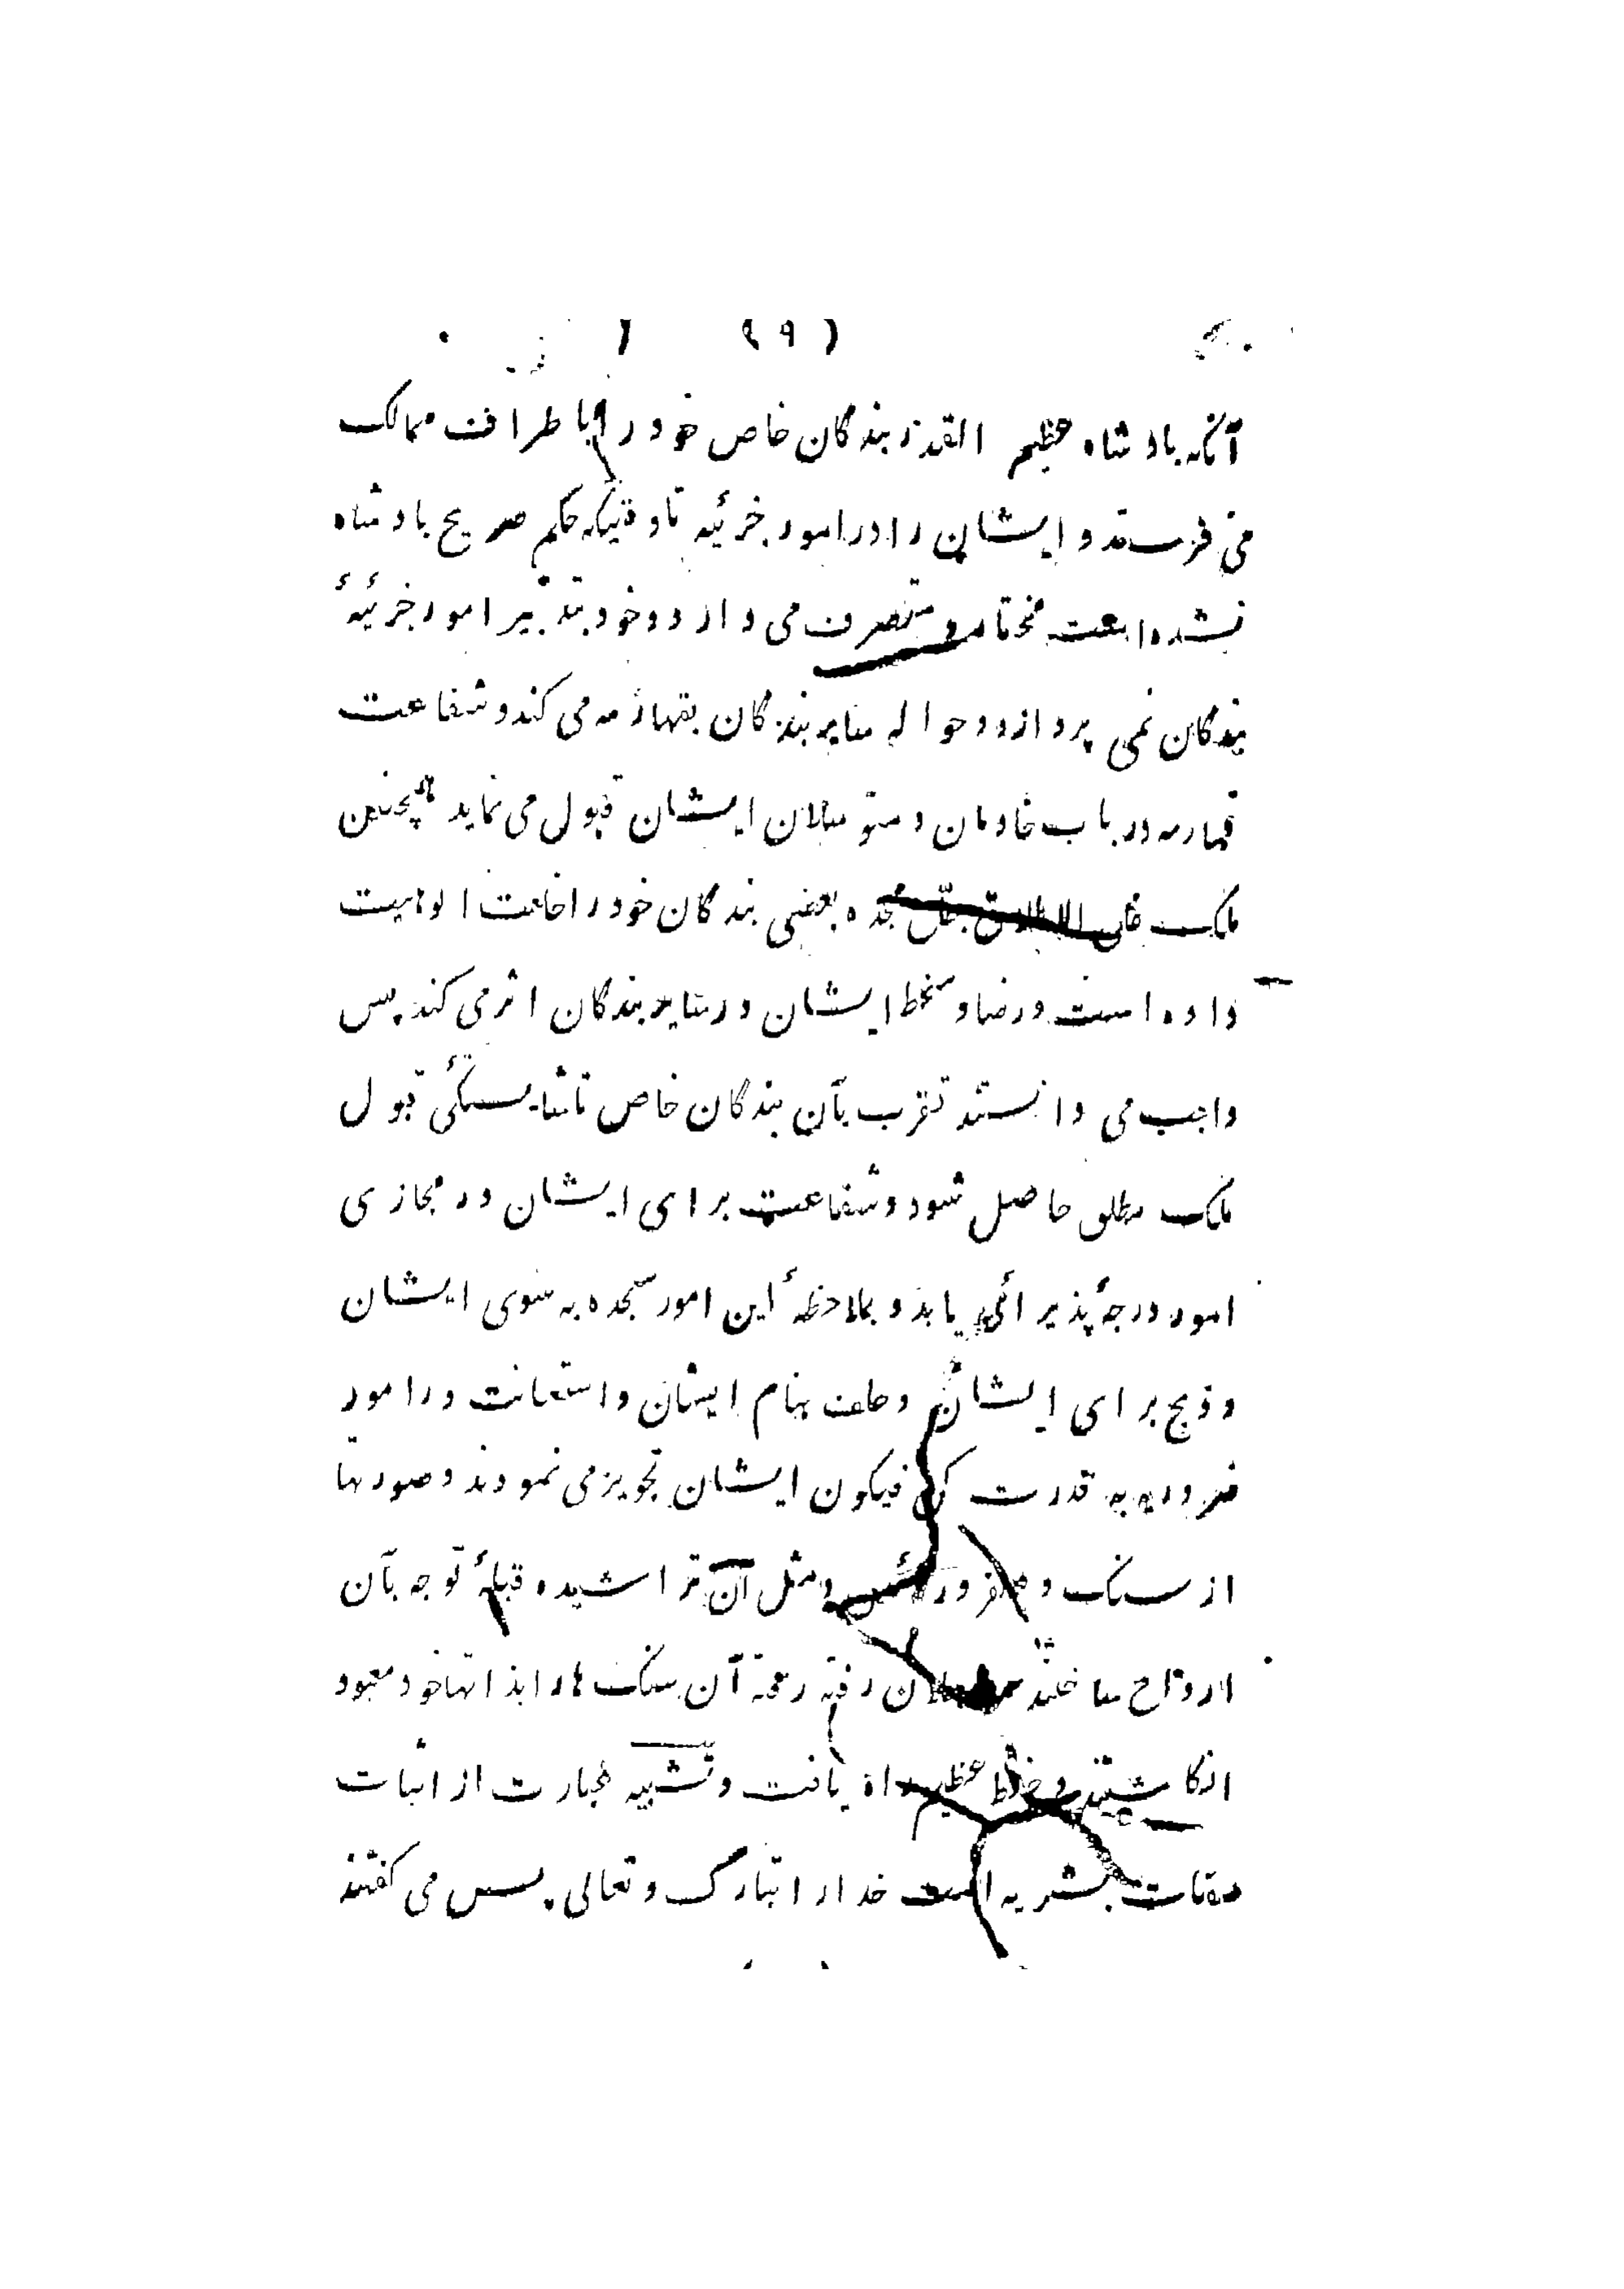 ( ۹ )
آنکه بادشاه عظیم القدر بندگان خاص خود را باطراف ممالک
می فرستد و ایشان را در امور جزئیه تا وقتیکه حکم صریح بادشاه
نشده است مختار و متصرف می دارد و خود بتدبیر امور جزئیۀ
بندگان نمی پردازد و حواله سایر بندگان بقهارمه می کند و شفاعت
قهارمه در باب خادمان و متوسلان ایشان قبول می نماید همچنین
ملک علی الاطلاق جل مجده بعضی بندگان خود را خلعت الوهیت
داده است و رضا و سخط ایشان در سایر بندگان اثر می کند پس
واجب می دانستند تقرب بآن بندگان خاص تا شایستگئ قبول
ملک مطلق حاصل شود و شفاعت برای ایشان در مجازی
امور درجۀ پذیرائی یابد و بملاحظۀ این امور سجده به سوی ایشان
و ذبح برای ایشان و حلف بنام ایشان و استعانت در امور
ضروریه به قدرت کن فیکون ایشان تجویز می نمودند و صورتها
از سنگ و صفر و روئین و مثل آن تراشیده قبلۀ توجه بآن
ارواح ساختند رفته رفته آن سنگ ها را بذاتها خود معبود
انگاشتند و خلط عظیم راه یافت و تشبیه عبارت از اثبات
صفات بشریه است خدا را تبارک و تعالی پس می گفتند